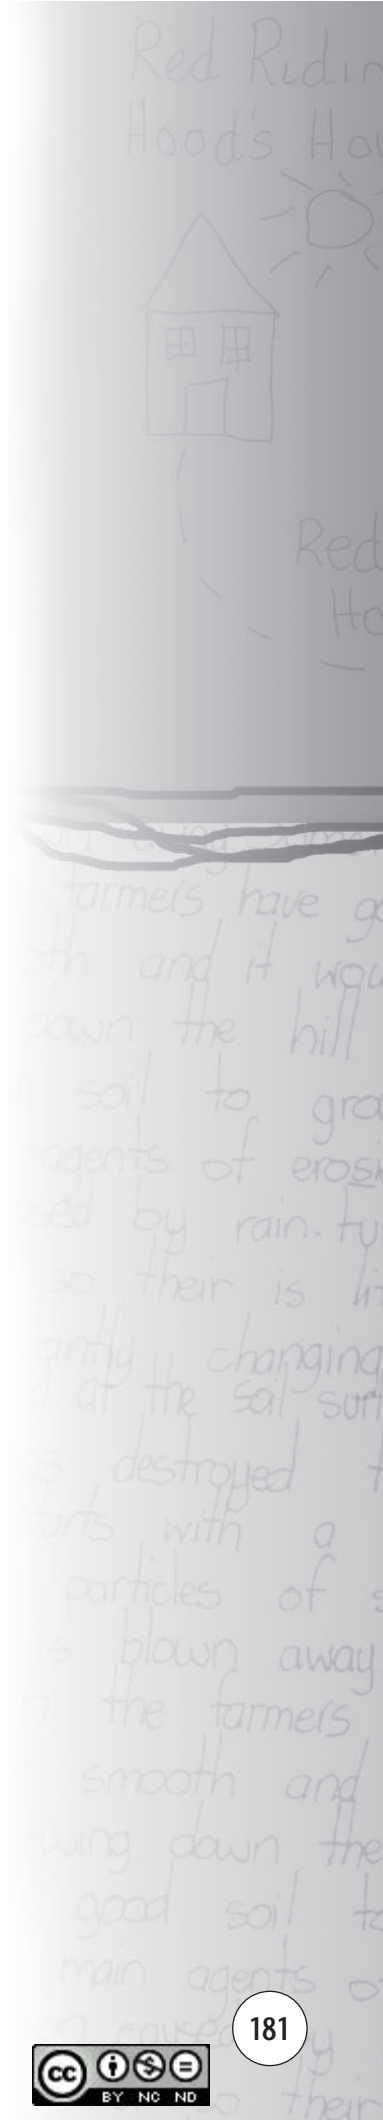 Red Ridin
Hood's Hou
Red
Ho
away some
farmers have go
and it wou
down the hill
soil to gro
agents of erosi
by rain. tu
so their is lit
changing
at the soil surf
destroyed t
with a
particles of s
is blown away
the farmers
smooth and
down the
good soil to
main agents o
181
caused by
cc
BY NC ND
their